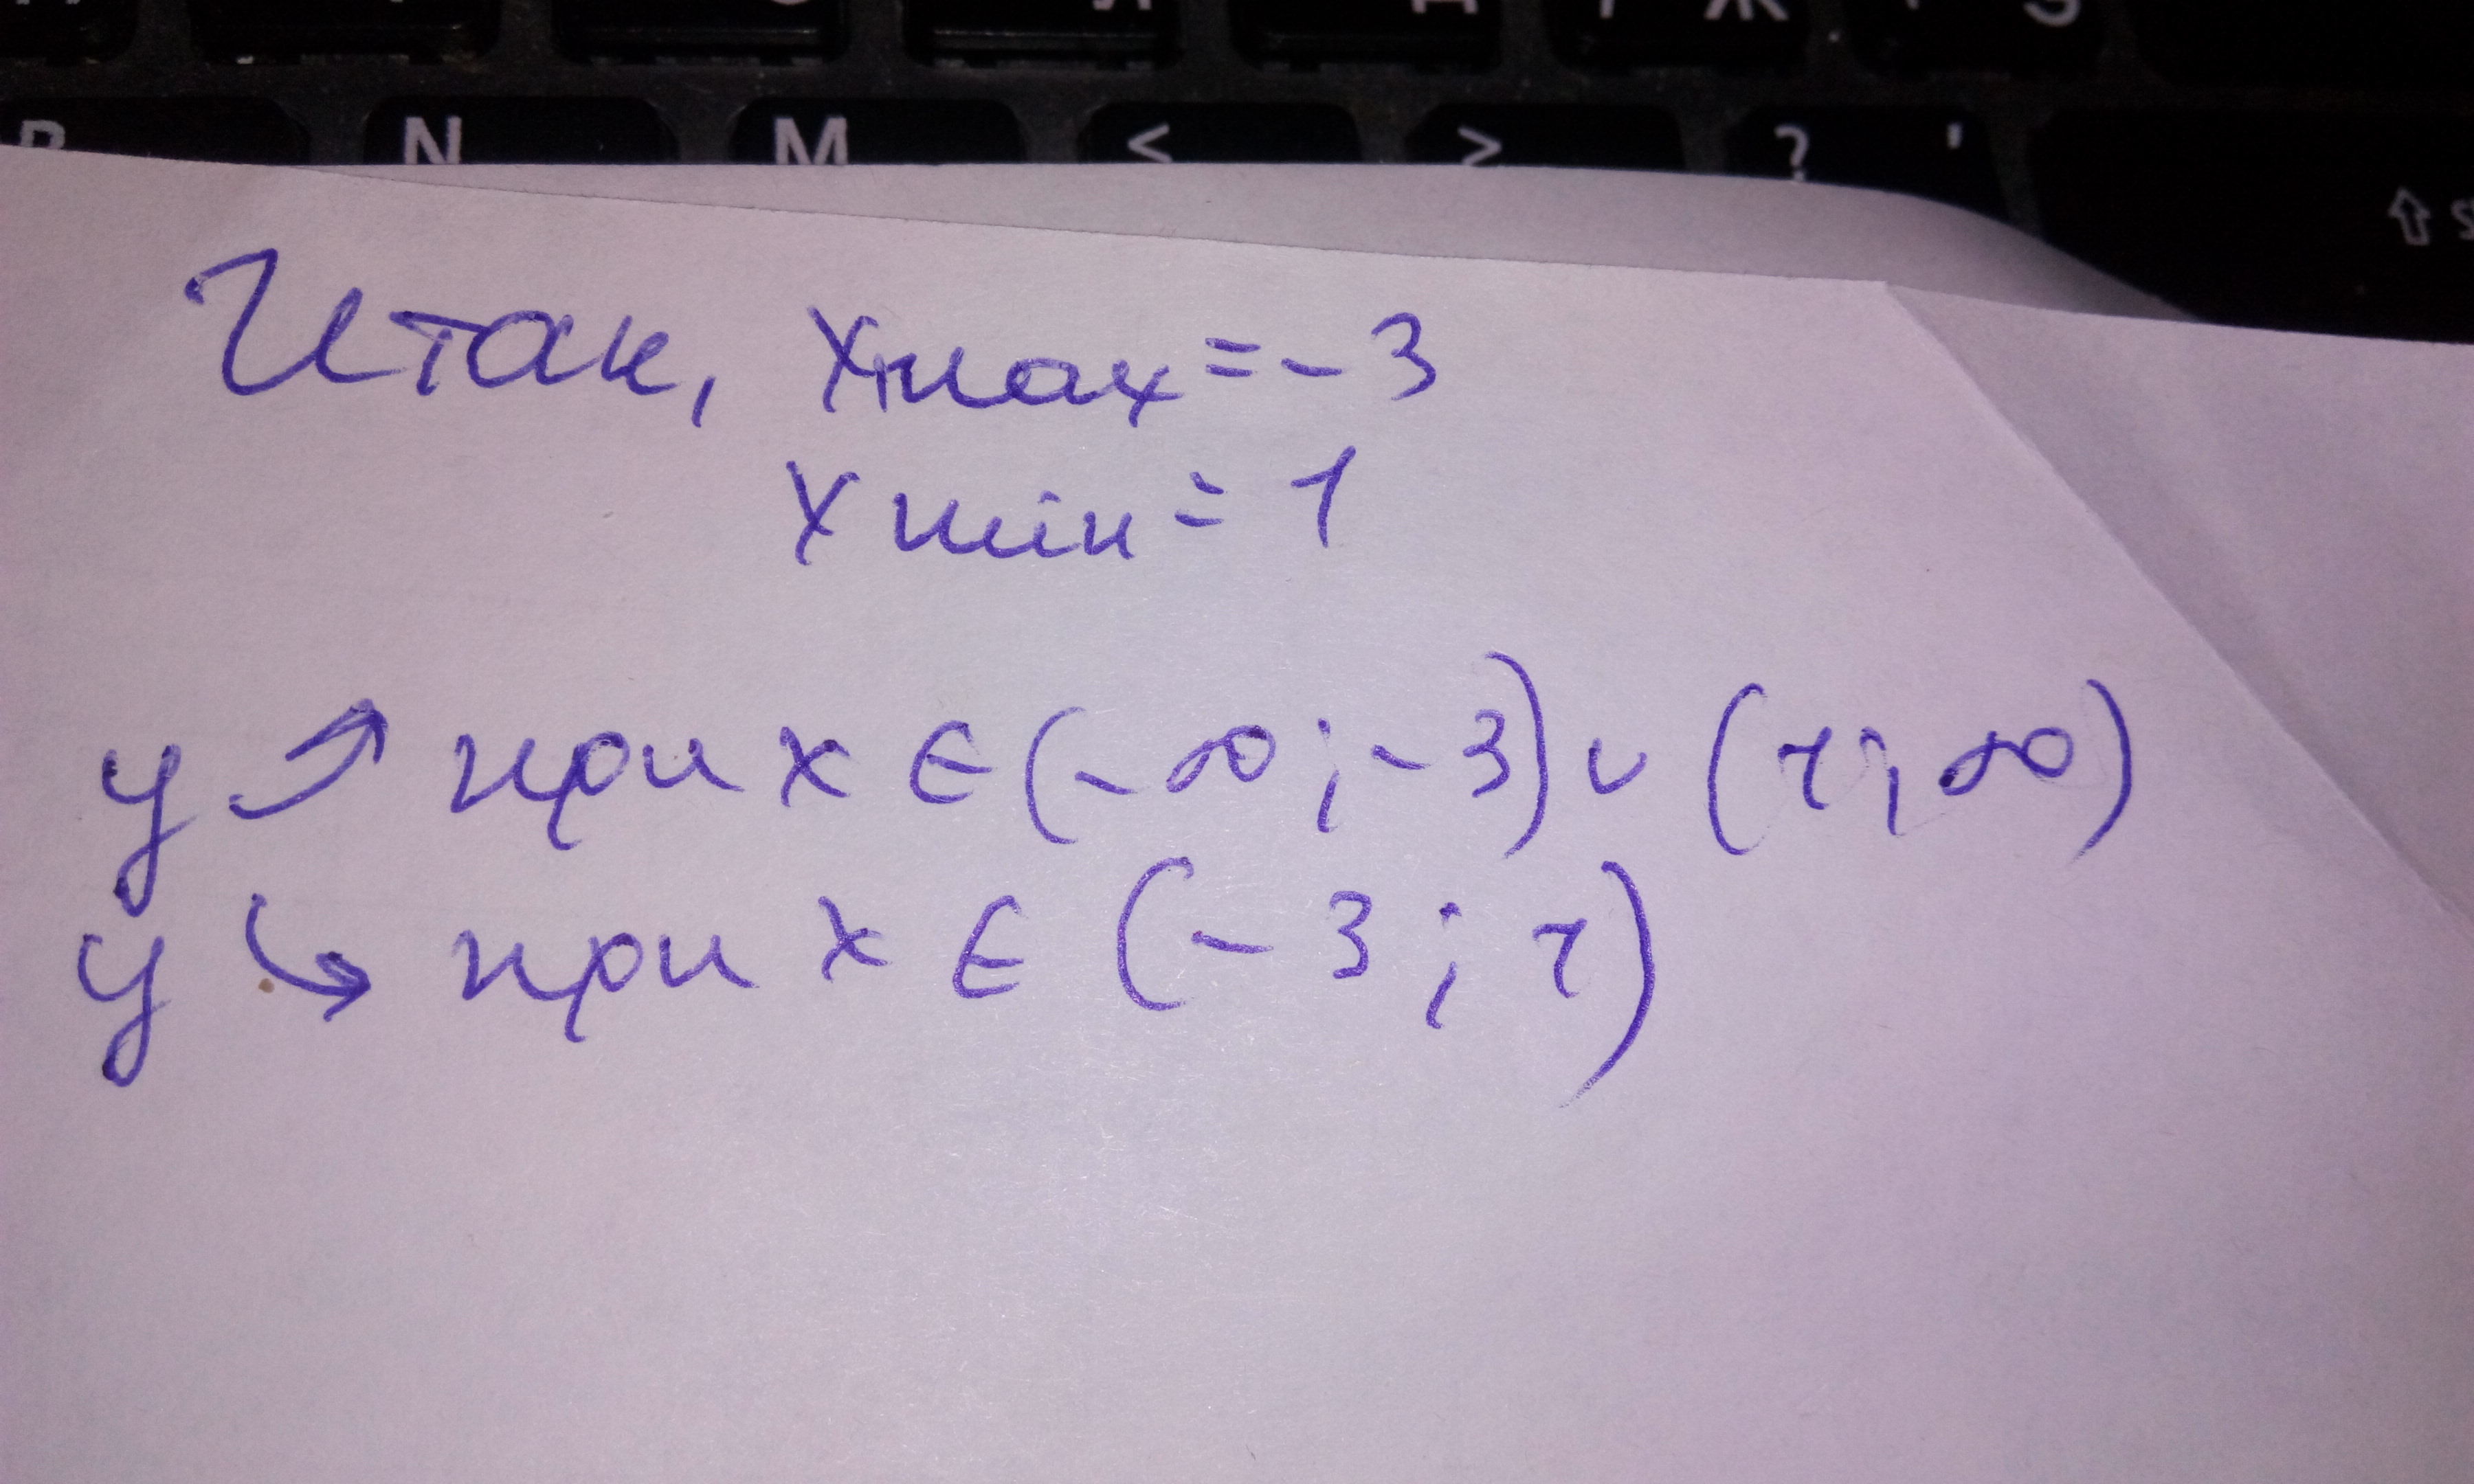 N M < > ? '
⇧
Итак, xmax = -3
x min = 1
y ↗ при x ∈ (-∞; -3) ∪ (1; ∞)
y ↘ при x ∈ (-3; 1)